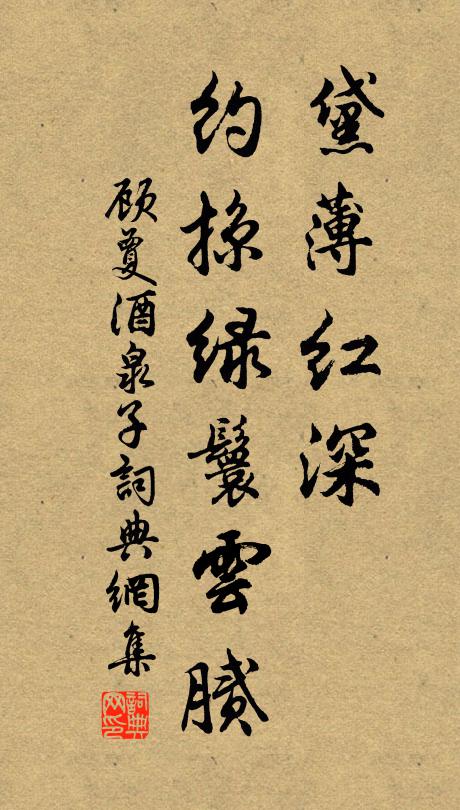 黛薄红深
约掠绿鬟雲腻
顾夐酒泉子詞典網集
詞典网印